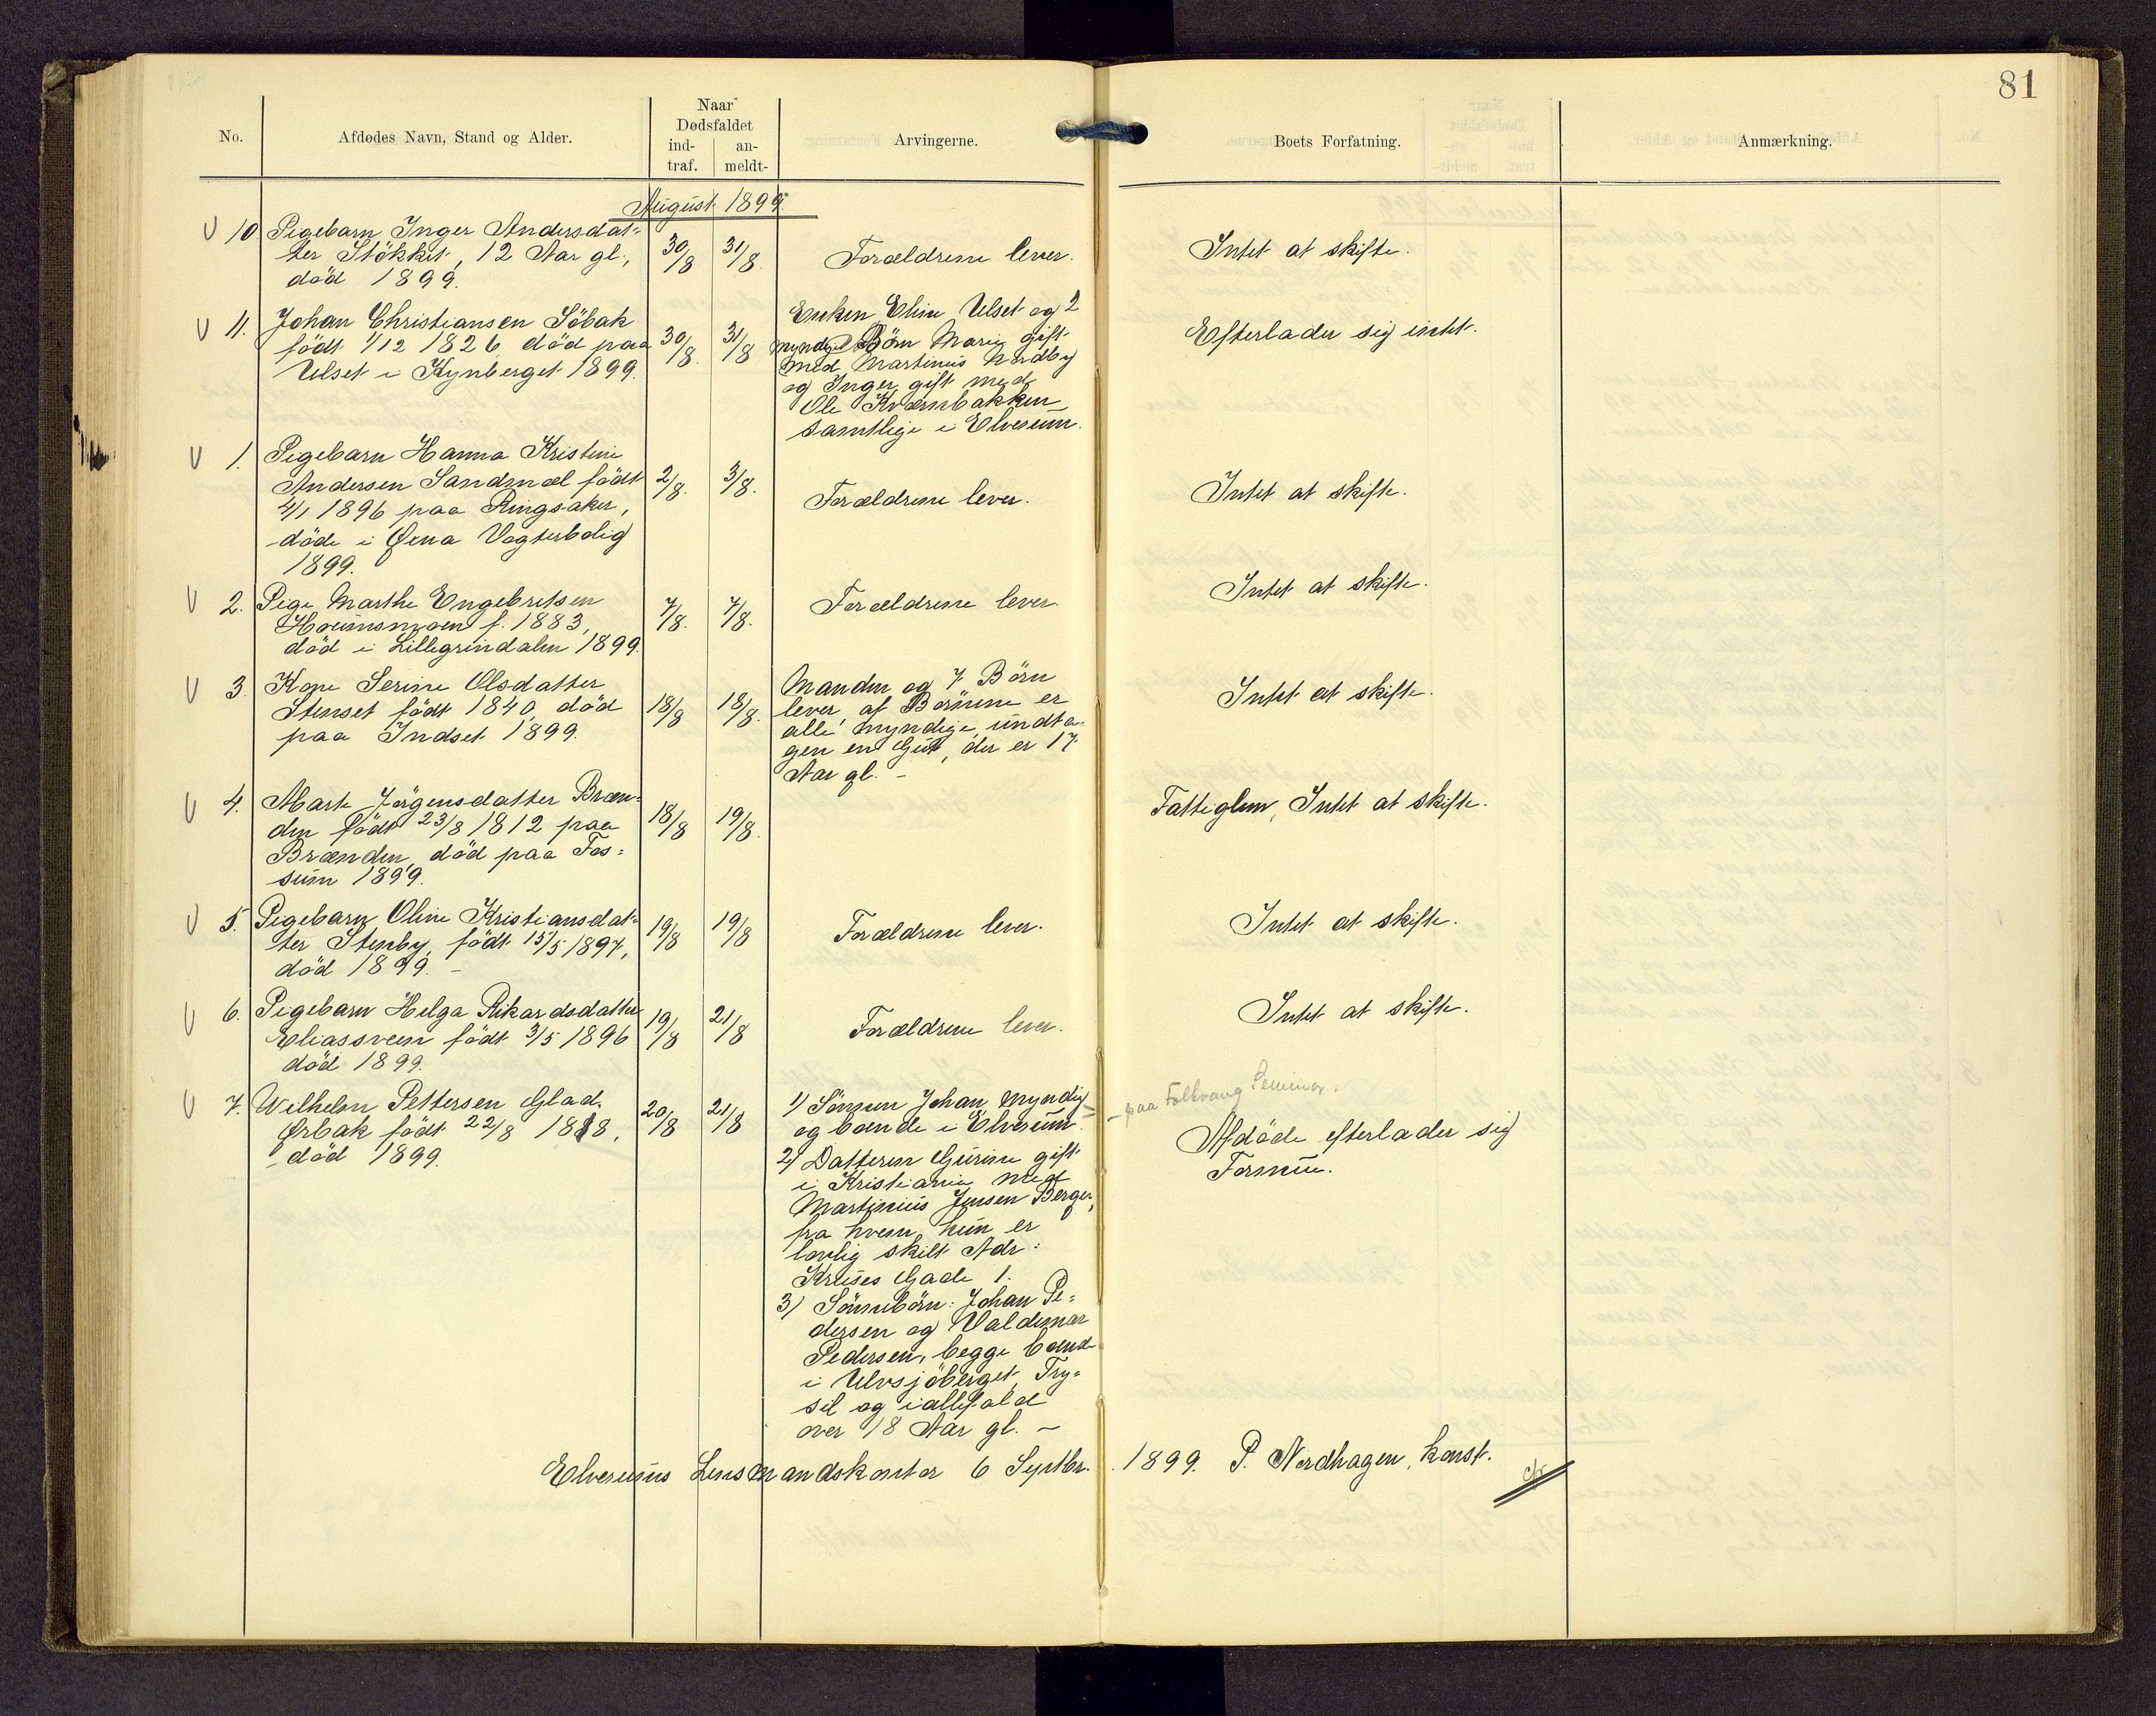 81
No.
Afdødes Navn, Stand og Alder.
Naar
Dødsfaldet
ind-
traf.
an-
meldt-
Arvingerne.
Boets Forfatning.
Anmærkning.
August 1899
V 10. Pigebarn Inger Andersdat-
ter Stökket, 12 Aar gl.,
död 1899.
30/8
31/8.
Forældrene lever.
Intet at skifte.
V 11. Johan Christiansen Söbak
födt 1/12 1826 död paa
Ulset i Kynberget 1899.
30/8.
31/8
Enken Eline Ulset og 2
myndige Börn Marie gift
med Martinius Nordby
og Inger gift med
Ole Kværnbakken
samtlige i Elverum.
Efterlader sig intet.
V 1. Pigebarn Hanna Kristine
Andersen Sandmæl födt
4/1 1896 paa Ringsaker,
döde i Øxna Vogterbolig
1899.
2/8.
3/8.
Forældrene lever.
Intet at skifte.
V 2. Pige Marthe Engebretsen
f. 1883,
död i Lillegrindalen 1899.
7/8.
7/8.
Forældrene lever.
Intet at skifte.
V 3. Kone Serine Olsdatter
Stenset födt 1840, död
paa Indset 1899.
18/8
18/8.
Manden og 7 Börn
lever, af Börnene er
alle myndige, undta-
gen en Gut, der er 17
Aar gl. -
Intet at skifte.
V 4. Marte Jörgensdatter Bræn-
den födt 23/8 1812 paa
Brænden, död paa Fos-
sum 1899.
18/8
19/8.
Fattiglem, Intet at skifte.
V 5. Pigebarn Oline Kristiansdat-
ter Stenby, födt 15/5 1897,
död 1899. -
19/8
19/8
Forældrene lever.
Intet at skifte.
V 6. Pigebarn Helga Rikardsdatter
Eliassveen födt 3/5 1896
död 1899.
19/8
21/8
Forældrene lever.
Intet at skifte.
V 7. Wilhelm Pettersen Glad.
Ørbak födt 22/8 1818,
död 1899.
20/8
21/8
1) Sönnen Johan, myndig
og boende i Elverum.
- paa Folkvang Seminar.
2) Datteren Gurine gift
i Kristiania med
Martinius Jensen Berger,
fra hvem hun er
lovlig skilt Adr:
Kruses Gade 1.
3) Sönnebörn: Johan Pe-
dersen og Valdemar
Pedersen, begge boende
i Ulvsjöberget, Try-
sil og iallefald
over 18 Aar gl. -
Afdöde efterlader sig
Formue.
Elverums Lensmandskontor 6 Septbr. 1899. P. Nordhagen, konst.